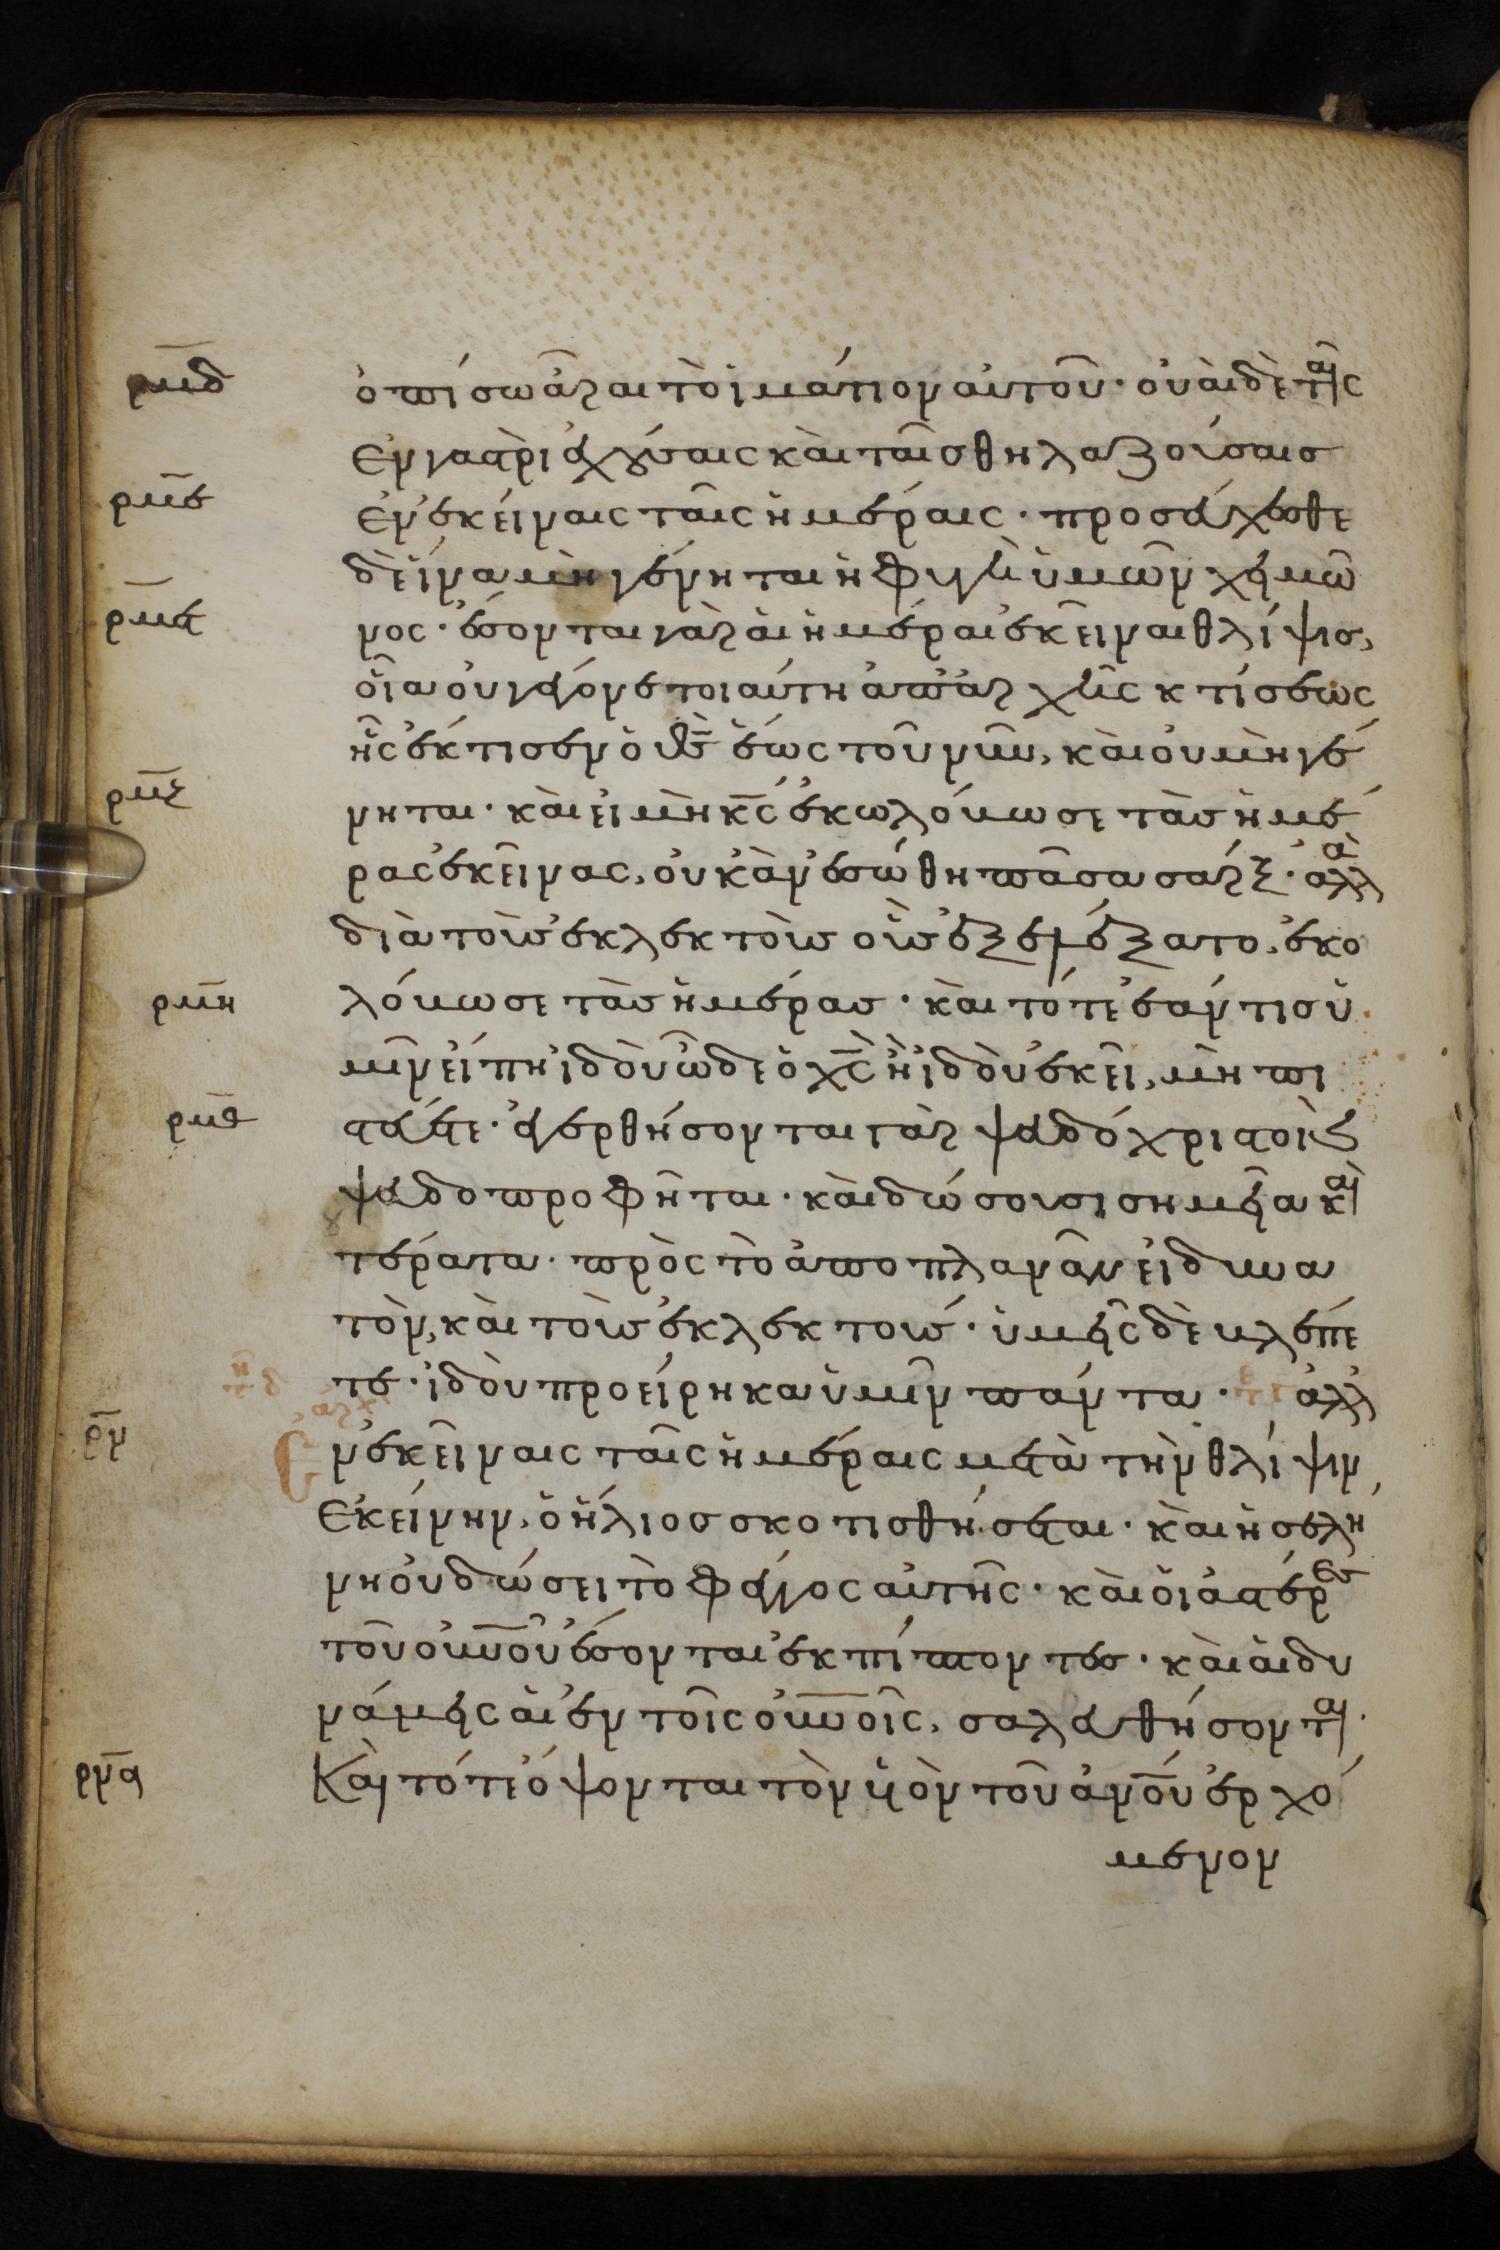 ρμδ ὀπίσω ἆραι τὸ ἱμάτιον αὐτοῦ· οὐαὶ δὲ ταῖς
ἐν γαστρὶ ἐχούσαις καὶ ταῖς θηλαζούσαις
ρμε ἐν ἐκείναις ταῖς ἡμέραις· προσεύχεσθε
δὲ ἵνα μὴ γένηται ἡ φυγὴ ὑμῶν χειμῶ
ρμϛ νος· ἔσονται γὰρ αἱ ἡμέραι ἐκεῖναι θλίψις,
οἵα οὐ γέγονε τοιαύτη ἀπ' ἀρχῆς κτίσεως
ἧς ἔκτισεν ὁ θ̅ς̅ ἕως τοῦ νῦν, καὶ οὐ μὴ γέ
ρμζ νηται· καὶ εἰ μὴ κ̅ς̅ ἐκωλόβωσε τὰς ἡμέ
ρας ἐκείνας, οὐκ ἂν ἐσώθη πᾶσα σάρξ· ἀλλὰ
διὰ τοὺς ἐκλεκτοὺς οὓς ἐξελέξατο, ἐκο
ρμη λόβωσε τὰς ἡμέρας· καὶ τότε ἐάν τις ὑ
μῖν εἴπῃ ἰδοὺ ὧδε ὁ χ̅ς̅ ἢ ἰδοὺ ἐκεῖ, μὴ πι
ρμθ στεύετε· ἐγερθήσονται γὰρ ψευδόχριστοι καὶ
ψευδοπροφῆται· καὶ δώσουσι σημεῖα καὶ
τέρατα· πρὸς τὸ ἀποπλανᾶν εἰ δυνα
τὸν, καὶ τοὺς ἐκλεκτούς· ὑμεῖς δὲ βλέπε
τε· ἰδοὺ προείρηκα ὑμῖν πάντα· ἀλλ'
ρν ἐν ἐκείναις ταῖς ἡμέραις μετὰ τὴν θλίψιν
ἐκείνην, ὁ ἥλιος σκοτισθήσεται· καὶ ἡ σελή
νη οὐ δώσει τὸ φέγγος αὐτῆς· καὶ οἱ ἀστέρες
τοῦ ο̅υ̅ν̅ο̅ῦ ἔσονται ἐκπίπτοντες· καὶ αἱ δυ
νάμεις αἱ ἐν τοῖς ο̅υ̅ν̅οῖς, σαλευθήσονται·
ρνα Καὶ τότε ὄψονται τὸν υἱὸν τοῦ ἀ̅ν̅ο̅υ̅ ἐρχό
μενον